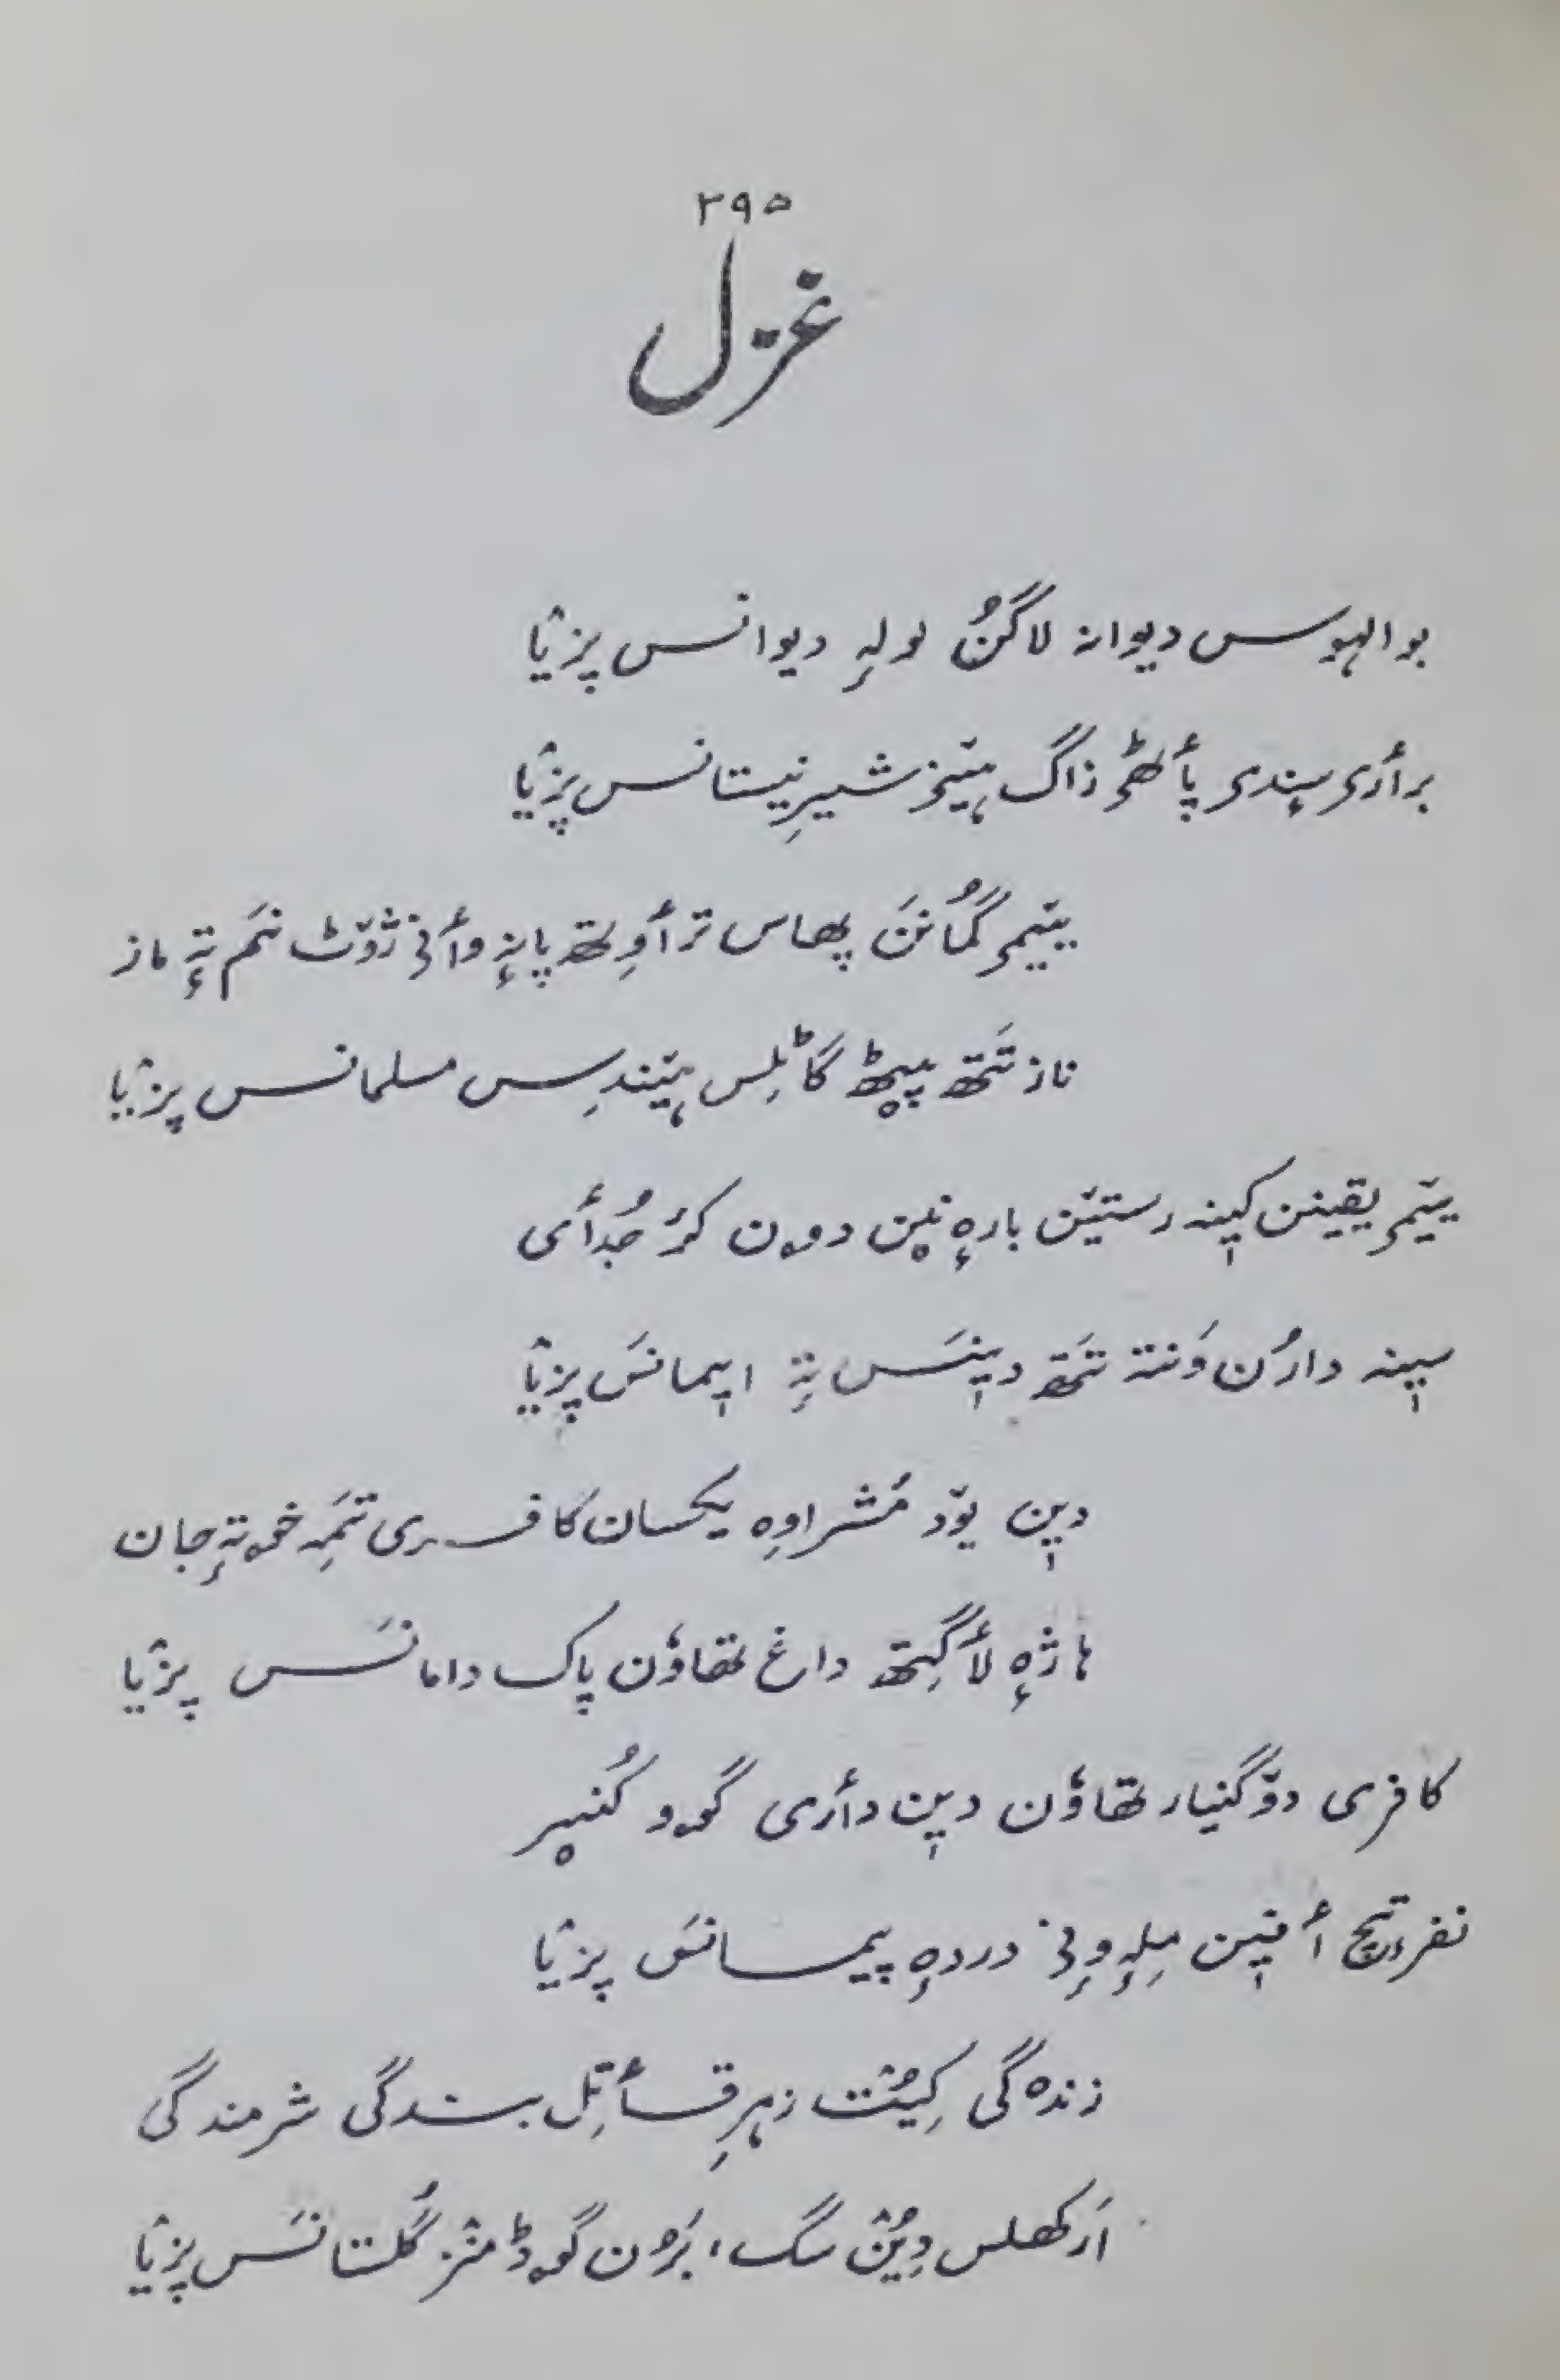 ۲۹۵
غزل
بوالہوس دیوانہ لاگُن لولہِ دیوانس پزیٛا
برأری سٕندی پأٹھۍ ژاگ ہیٚز شیرِنیستانس پزیٛا
ییٚمۍ گُمانَن پھاس ترأوِتھ پانہٕ وأنۍ ژوٚٹ نَم تہٕ ماز
ناز تَتھ پیٚٹھ گاٹِلس ہیٚندِس مسلمانس پزیٛا
ییٚمۍ یقینن کیٖنہ رستیٚن بارٕہ نٮ۪ن دوہ ن کرٔ جُدأی
سیٖنہ دارُن وَنتہ تَتھ دیٖنَس تہٕ ایٖمانَس پزیٛا
دیٖن یوٚد مُشراوِہ یکسان کافری تَمہِ خوتہٕ جان
ہاژٕہ لأگِتھ داغ تھاوُن پاک دامانَس پزیٛا
کافری دوٚگنیار تھاوُن دیٖن دأری گوو کُنیر
نفرتچ أفیٖن مِلہٕ وٕنۍ دردہٕ پیمانَس پزیٛا
زندہ گی کِیُٛت زہرِ قأتِل بندگی شرمندگی
اَرکھلس دِیُٛن سگ، بَرُن گوڈ منٛز گُلستانَس پزیٛا